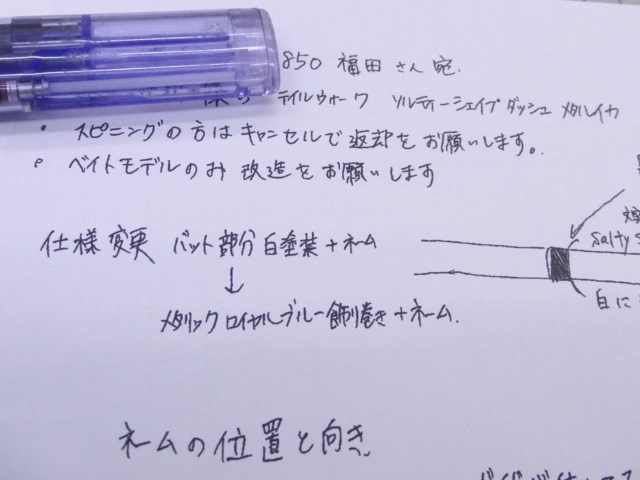 850 福田さん宛.
テイルウォーク ソルティーシェイプダッシュ メタルイカ
・スピニングの方はキャンセルで返却をお願いします。
・ベイトモデルのみ改造をお願いします
仕様変更 バット部分白塗装+ネーム
↓
メタリックロイヤルブルー飾り巻き+ネーム.
Salty
白に
ネームの位置と向き